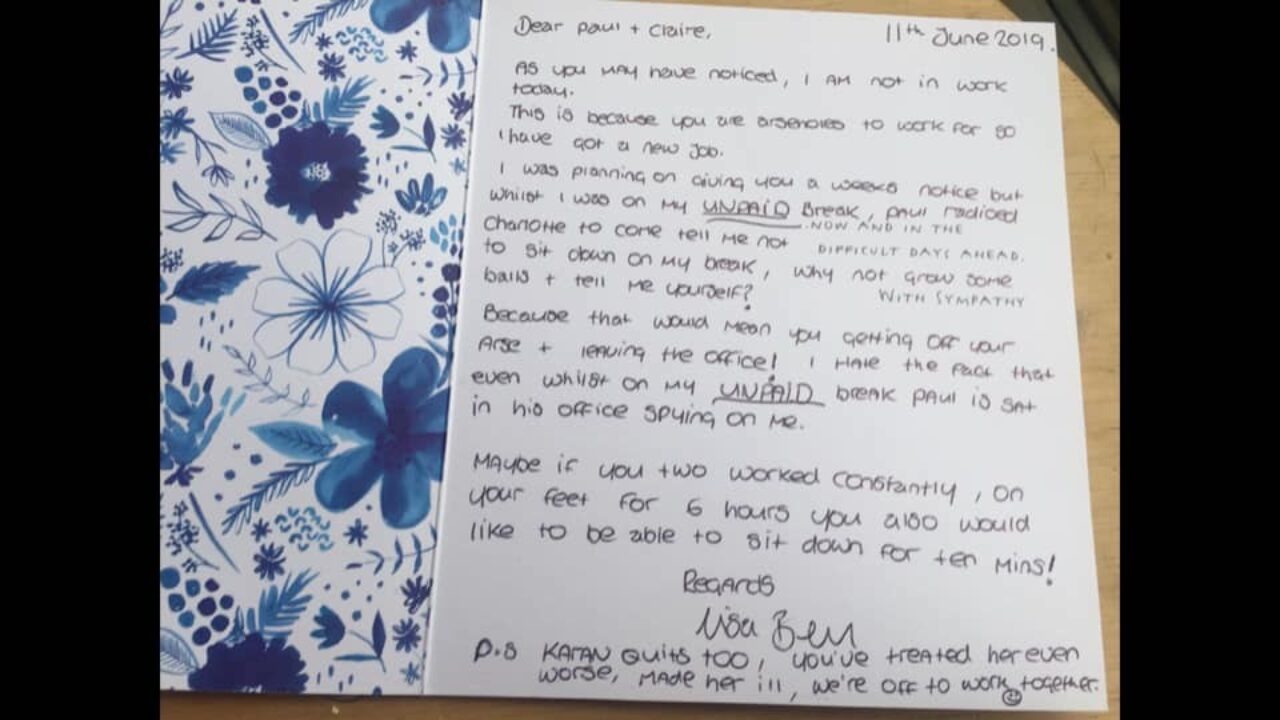 Dear Paul + Claire,
11th June 2019.
As you may have noticed, I am not in work
today.
This is because you are arseholes to work for so
I have got a new job.
I was planning on giving you a weeks notice but
whilst I was on my UNPAID break, Paul radioed
Charlotte to come tell me not
NOW AND IN THE
DIFFICULT DAYS AHEAD.
to sit down on my break, why not grow some
balls + tell me yourself?
WITH SYMPATHY
Because that would mean you getting off your
arse + leaving the office! I hate the fact that
even whilst on my UNPAID break Paul is sat
in his office spying on me.
Maybe if you two worked constantly, on
your feet for 6 hours you also would
like to be able to sit down for ten mins!
Regards
Lisa
P.S Karan quits too, you've treated her even
worse, made her ill, we're off to work together.